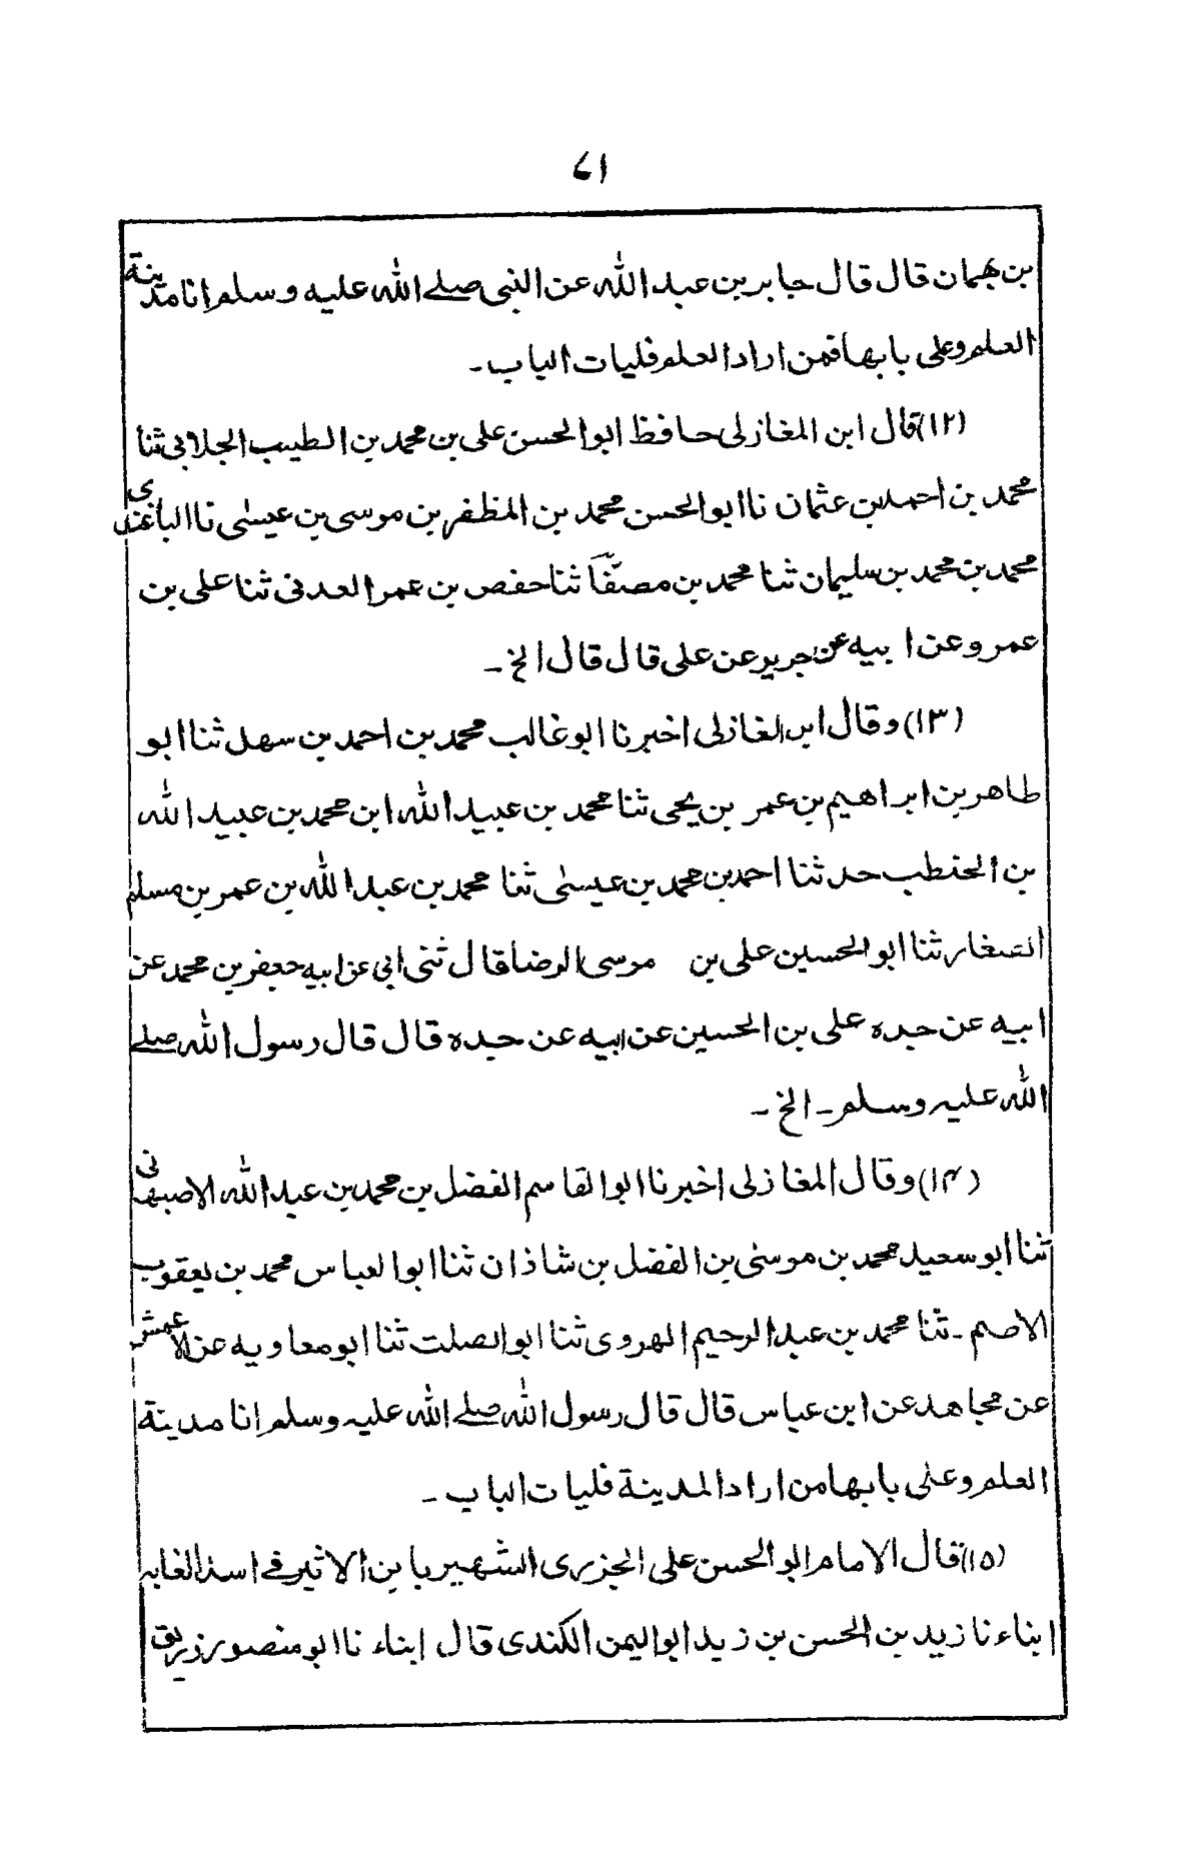 ٧١
بن بهمان قال قال جابر بن عبد الله عن النبي صلے الله عليه وسلم انا مدينة
العلم وعلى بابها فمن اراد العلم فليات الباب ـ
(١٢) قال ابن المغازلى حافظ ابو الحسن على بن محمد بن الطيب الجلابي ثنا
محمد بن احمد بن عثمان نا ابو الحسن محمد بن المظفر بن موسى بن عيسٰى نا الباغندى
محمد بن محمد بن سليمان ثنا محمد بن مصفّاَ ثنا حفص بن عمر العدنى ثنا على بن
عمر وعن ابيه عن جرير عن على قال قال الخ ـ
(١٣) وقال ابن المغازلى اخبرنا ابو غالب محمد بن احمد بن سهل ثنا ابو
طاهر بن ابراهيم بن عمر بن يحى ثنا محمد بن عبيد الله ابن محمد بن عبيد الله
بن المخطب حدثنا احمد بن محمد بن عيسىٰ ثنا محمد بن عبد الله بن عمر بن مسلم
الصغار ثنا ابو الحسين على بن موسى الرضا قال ثنى ابى عن ابيه جعفر بن محمد عن
ابيه عن جده على بن الحسين عن ابيه عن جده قال قال رسول الله صلے
الله عليه وسلم ـ الخ ـ
(١٤) وقال المغازلى اخبرنا ابو القاسم الفضل بن محمد بن عبد الله الاصبهانى
ثنا ابو سعيد محمد بن موسىٰ بن الفضل بن شاذان ثنا ابو العباس محمد بن يعقوب
الاصم ـ ثنا محمد بن عبد الرحيم الهروى ثنا ابو الصلت ثنا ابو معاويه عن الاعمش
عن مجاهد عن ابن عباس قال قال رسول الله صلے الله عليه وسلم انا مدينة
العلم وعلى بابها من اراد المدينة فليات الباب ـ
(١٥) قال الامام ابو الحسن على الجزرى الشهير بابن الاثير فے اسد الغابه
ابناء نا زيد بن الحسن بن زيد ابو اليمن الكندى قال ابناء نا ابو منصور زريق